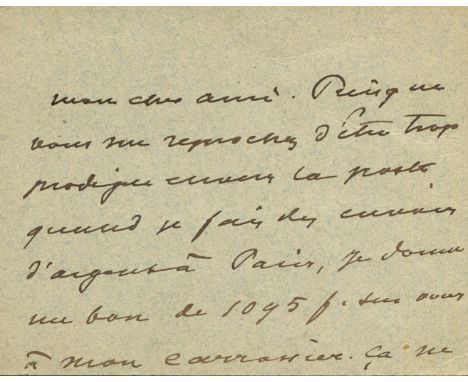 mon cher ami. Puisque
vous me reprochez d'être trop
prodigue envers la poste
quand je fais des envois
d'argent à Paris, je donne
un bon de 1095 f. sur vous
à mon carrossier. Ça ne